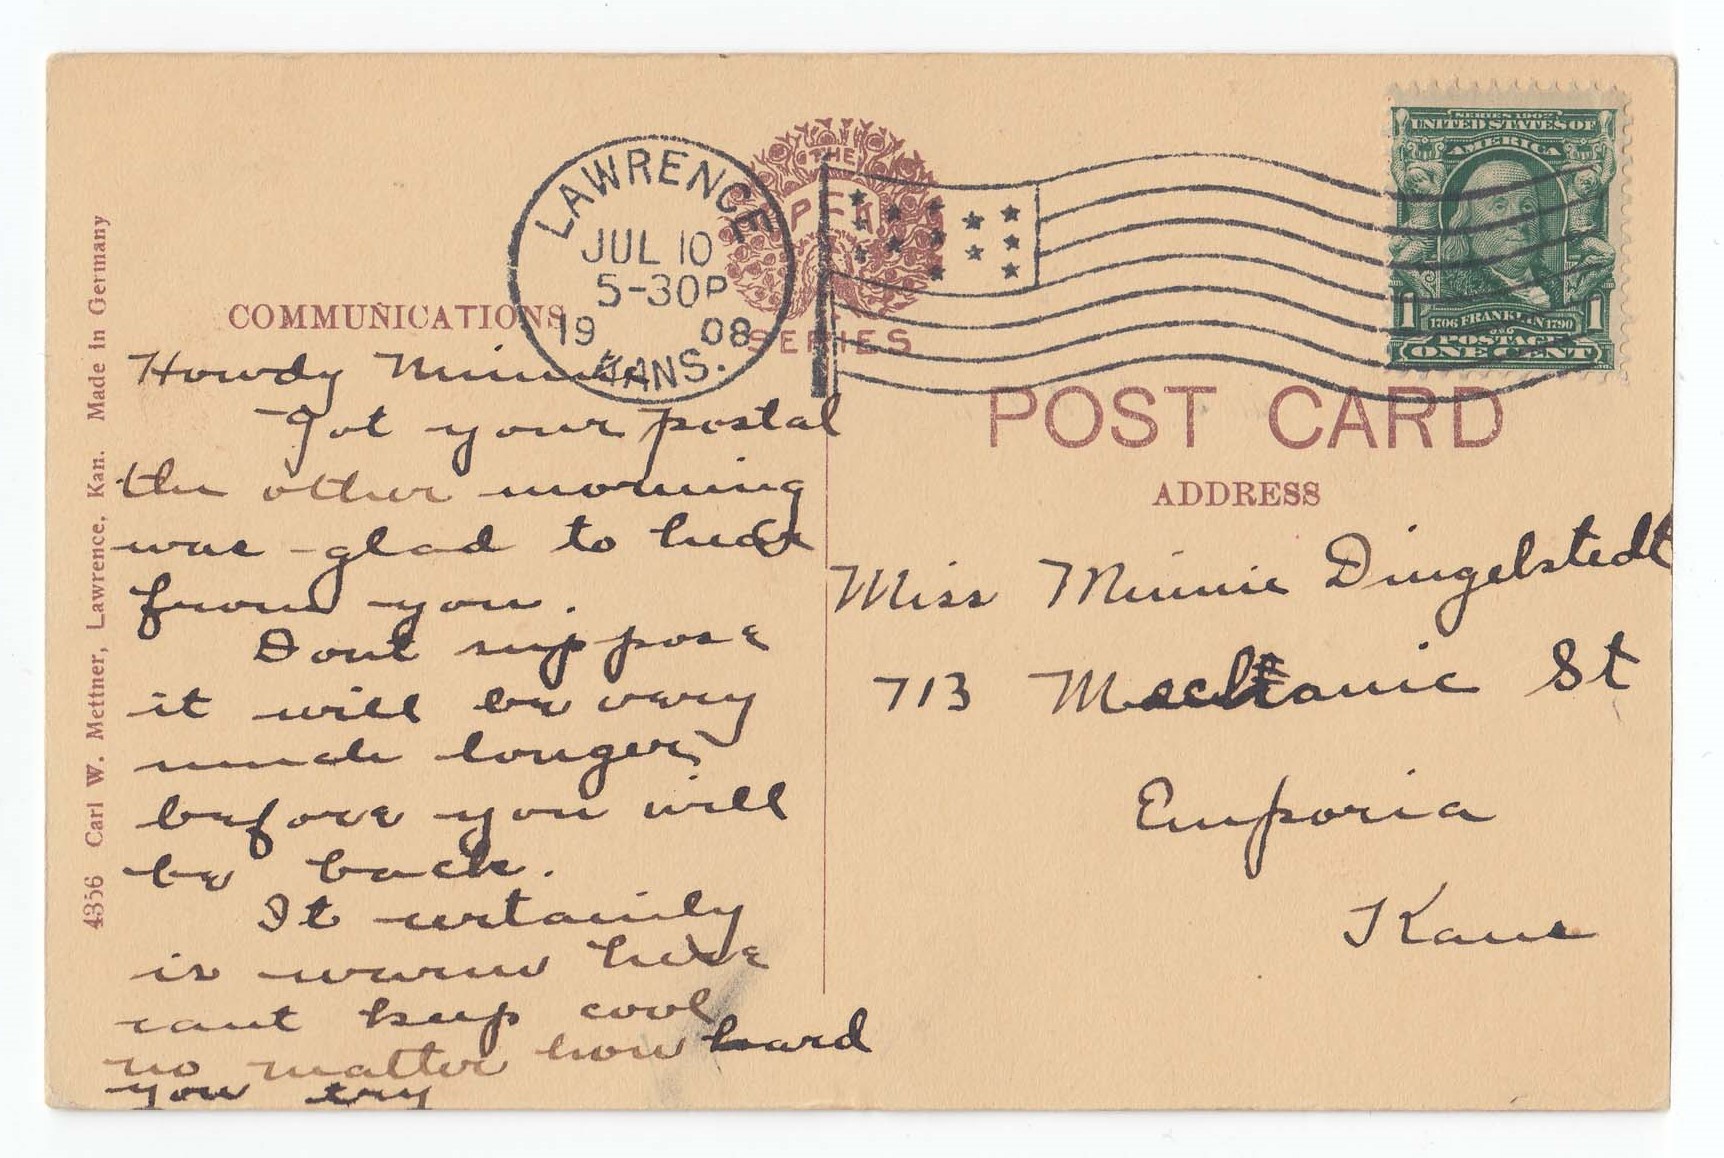 4356 Carl W. Mettner, Lawrence, Kan. Made in Germany
COMMUNICATIONS
Howdy Minnie
Got your postal
the other morning
was glad to hear
from you.
Dont suppose
it will be very
much longer
before you will
be back.
It certainly
is warm here
cant keep cool
no matter how hard
you try
LAWRENCE
JUL 10
5-30P
19 08
KANS.
THE
SERIES
SERIES 1902
UNITED STATES OF
AMERICA
1 1
1706 FRANKLIN 1790
POSTAGE
ONE CENT
POST CARD
ADDRESS
Miss Minnie Dingelstedt
713 Mechanic St
Emporia
Kans